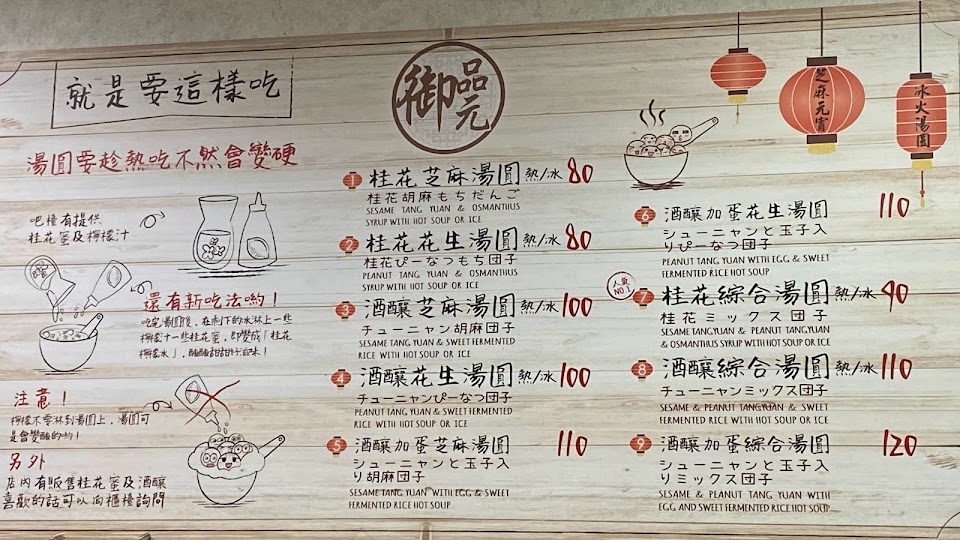 就是要這樣吃
湯圓要趁熱吃不然會變硬
吧檯有提供
桂花蜜及檸檬汁
還有新吃法喲！
吃完湯圓後，在剩下的冰沐上一些
檸檬汁一些桂花蜜，即變成「桂花
檸檬冰」，酸酸甜甜好滋味！
注意！
檸檬不要淋到湯圓上，湯圓可
是會變酸的喲！
另外
店內有販售桂花蜜及酒釀
喜歡的話可以向櫃檯詢問
御品元
1 桂花芝麻湯圓 熱/冰 80
桂花胡麻もちだんご
SESAME TANG YUAN & OSMANTHUS
SYRUP WITH HOT SOUP OR ICE
2 桂花花生湯圓 熱/冰 80
桂花ぴーなつもち団子
PEANUT TANG YUAN & OSMANTHUS
SYRUP WITH HOT SOUP OR ICE
3 酒釀芝麻湯圓 熱/冰 100
チューニャン胡麻団子
SESAME TANG YUAN & SWEET FERMENTED
RICE WITH HOT SOUP OR ICE
4 酒釀花生湯圓 熱/冰 100
チューニャンぴーなつ団子
PEANUT TANG YUAN & SWEET FERMENTED
RICE WITH HOT SOUP OR ICE
5 酒釀加蛋芝麻湯圓 110
シューニャンと玉子入
り胡麻団子
SESAME TANG YUAN WITH EGG & SWEET
FERMENTED RICE HOT SOUP
芝麻元宵
冰火湯圓
6 酒釀加蛋花生湯圓 110
シューニャンと玉子入
りぴーなつ団子
PEANUT TANG YUAN WITH EGG & SWEET
FERMENTED RICE HOT SOUP
人氣
NO.1
7 桂花綜合湯圓 熱/冰 90
桂花ミックス団子
SESAME TANGYUAN & PEANUT TANGYUAN
& OSMANTHUS SYRUP WITH HOT SOUP OR ICE
8 酒釀綜合湯圓 熱/冰 110
チューニャンミックス団子
SESAME & PEANUT TANGYUAN & SWEET
FERMENTED RICE WITH HOT SOUP OR ICE
9 酒釀加蛋綜合湯圓 120
シューニャンと玉子入
りミックス団子
SESAME & PEANUT TANG YUAN WITH
EGG AND SWEET FERMENTED RICE HOT SOUP